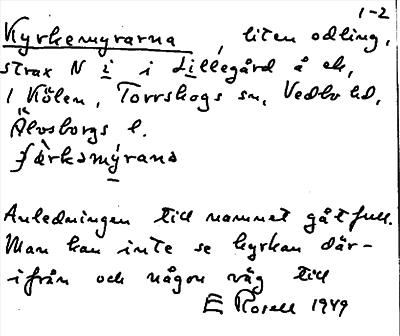 1-2
Kyrkemyrarna, liten odling,
strax N i i Lillegård å ek,
1 Kölen, Torrskogs sn, Vedbo hd,
Älvsborgs l.
Anledningen till namnet gåtfull.
Man kan inte se kyrkan där-
ifrån och någon väg till
E Rosell 1949